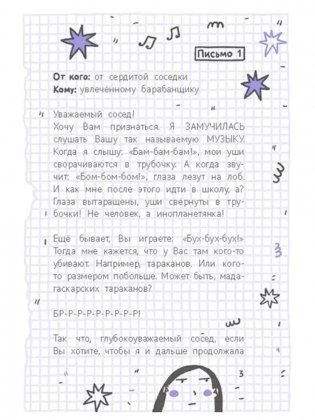 Письмо 1
От кого: от сердитой соседки
Кому: увлечённому барабанщику
Уважаемый сосед!
Хочу Вам признаться. Я ЗАМУЧИЛАСЬ
слушать Вашу так называемую МУЗЫКУ.
Когда я слышу: «Бам-бам-бам!», мои уши
сворачиваются в трубочку. А когда зву-
чит: «Бом-бом-бом!», глаза лезут на лоб.
И как мне после этого идти в школу, а?
Глаза вытаращены, уши свёрнуты в тру-
бочки! Не человек, а инопланетянка!
Ещё бывает, Вы играете: «Бух-бух-бух!»
Тогда мне кажется, что у Вас там кого-то
убивают. Например, тараканов. Или кого-
то размером побольше. Может быть, мада-
гаскарских тараканов?
БР-Р-Р-Р-Р-Р-Р-Р!
Так что, глубокоуважаемый сосед, если
Вы хотите, чтобы я и дальше продолжала